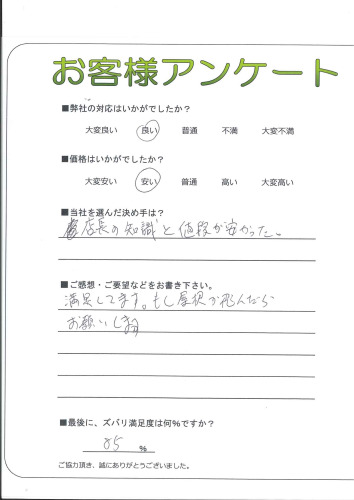 お客様アンケート
■弊社の対応はいかがでしたか?
大変良い 良い 普通 不満 大変不満
■価格はいかがでしたか?
大変安い 安い 普通 高い 大変高い
■当社を選んだ決め手は?
店長の知識と値段が安かった。
■ご感想・ご要望などをお書き下さい。
満足してます。もし屋根が飛んだら
お願いします
■最後に、ズバリ満足度は何%ですか?
85 %
ご協力頂き、誠にありがとうございました。